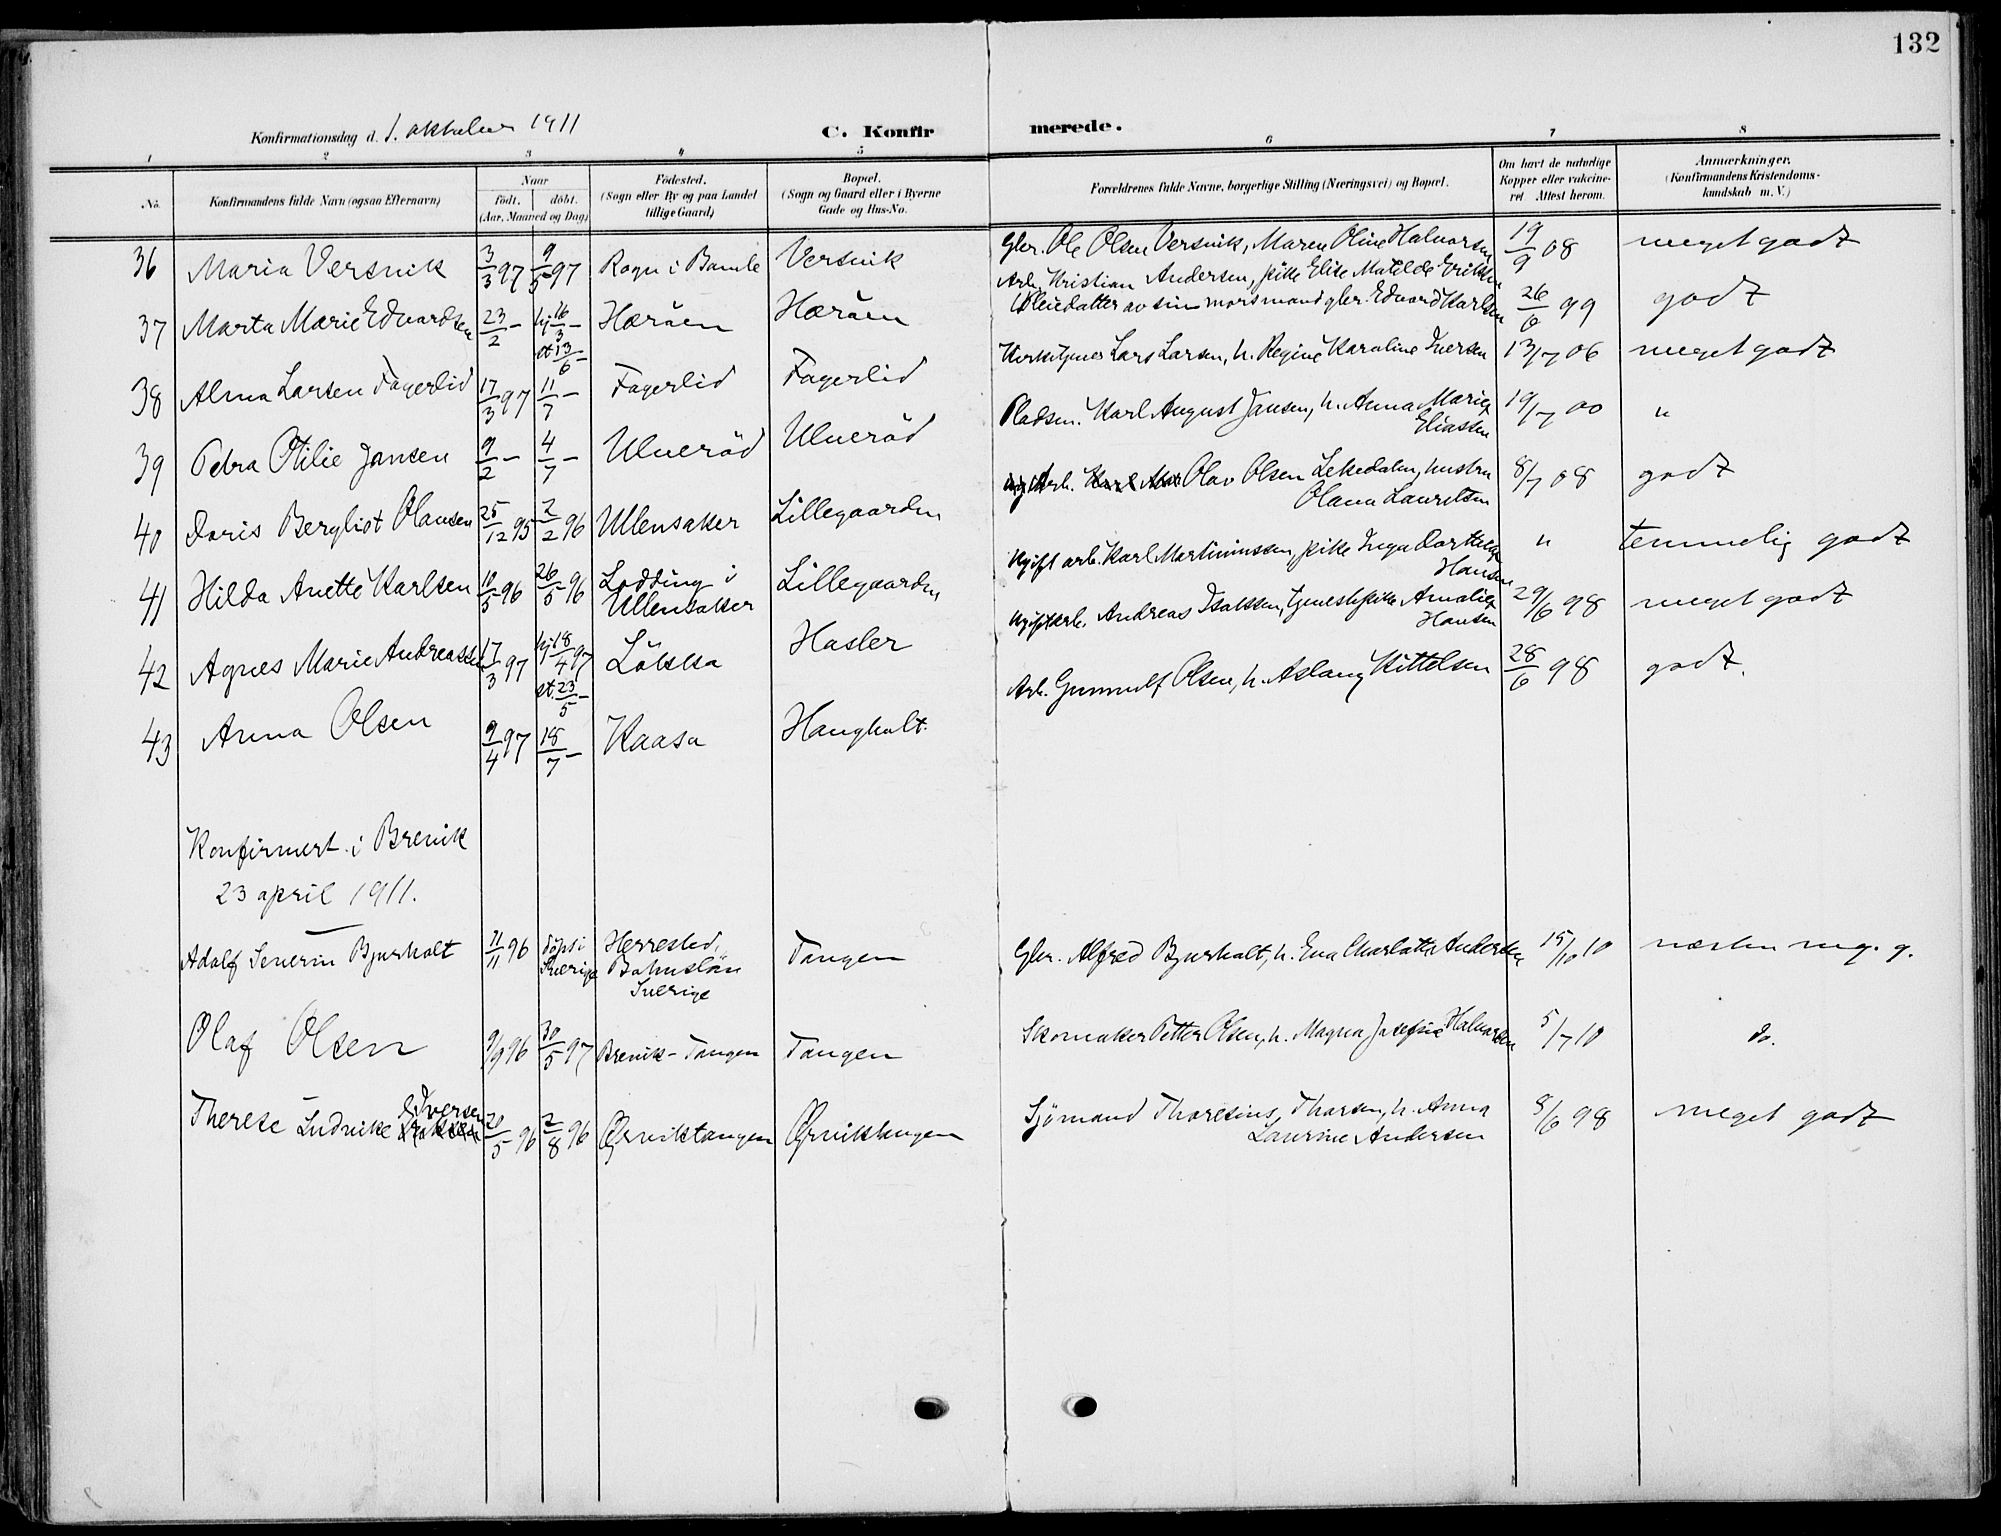 132
Konfirmationsdag d. 1. oktober 1911
C. Konfir merede.
1 2 3 4 5 6 7 8
No.
Konfirmandens fulde Navn (ogsaa Efternavn)
Naar
født. døbt.
(Aar, Maaned og Dag)
Fødested.
(Sogn eller By og paa Landet
tillige Gaard)
Bopæl.
(Sogn og Gaard eller i Byerne
Gade og Hus-No.
Forældrenes fulde Navne, borgerlige Stilling (Næringsvei) og Bopæl.
Om havt de naturlige
Kopper eller vakcine-
ret Attest herom.
Anmærkninger.
(Konfirmandens Kristendoms-
kundskab m. V.)
36 Maria Versvik 3/3 97 9/5 97 Rogn i Bamle Versvik Gbr. Ole Olsen Versvik, Maren Oline Halvorsen 19/9 08 meget godt
37 Marta Marie Edvardsen 23/2 – hj 16/3 – st 13/6 – Herøen Herøen Arb. Kristian Andersen, pike Elise Matilde Eriksen
Pleiedatter av sin morsmand gbr. Edvard Karlsen 26/6 99 godt
38 Alma Larsen Fagerlid 17/3 97 11/7 – Fagerlid Fagerlid Kirketjener Lars Larsen, h. Regine Karoline Iversen 13/7 06 meget godt
39 Petra Otilie Jansen 9/2 – 4/7 – Ulverød Ulverød Pladsm. Karl August Jansen, h. Anna Marie
Eliassen 19/7 00 "
40 Doris Bergliot Olausen 25/12 95 2/2 96 Ullensaker Lillegaarden Arb. Olav Olsen Lekedalen, hustru
Olava Lauritsen 8/7 08 godt
41 Hilda Anette Karlsen 10/5 96 26/5 96 Lodding i
Ullensaker Lillegaarden Ugift arb. Karl Martiniussen, pike Inga Dorthea
Hansen " temmelig godt
42 Agnes Marie Andreassen 17/3 97 hj 18/4 97 st. 23/5 – Løkka Hasler Ugift arb. Andreas Isaksen, tjenestepike Amalie
Hansen 29/6 98 meget godt
43 Anna Olsen 9/4 97 18/7 – Kaasa Haugholt. Arb. Gunnulf Olsen, h. Aslaug Kittelsen 28/6 98 godt.
Konfirmert i Brevik
23 april 1911.
Adolf Severin Bjurholt 11/11 96 døpt i
Sverige Herrested,
Bohuslän
Sverige Tangen Gbr. Alfred Bjurholt, h. Eva Charlotta Andersen 15/10 10 næsten meg. g.
Olaf Olsen 9/9 96 30/5 97 Brevik-Tangen Tangen Skomaker Petter Olsen, h. Magna Josefine Halvorsen 5/7 10 do.
Therese Ludvikke Iversen 20/5 96 2/8 96 Ørviktangen Ørviktangen Sjømand Thoresius Thorsen, h. Anna
Laurine Andersen 8/6 98 meget godt